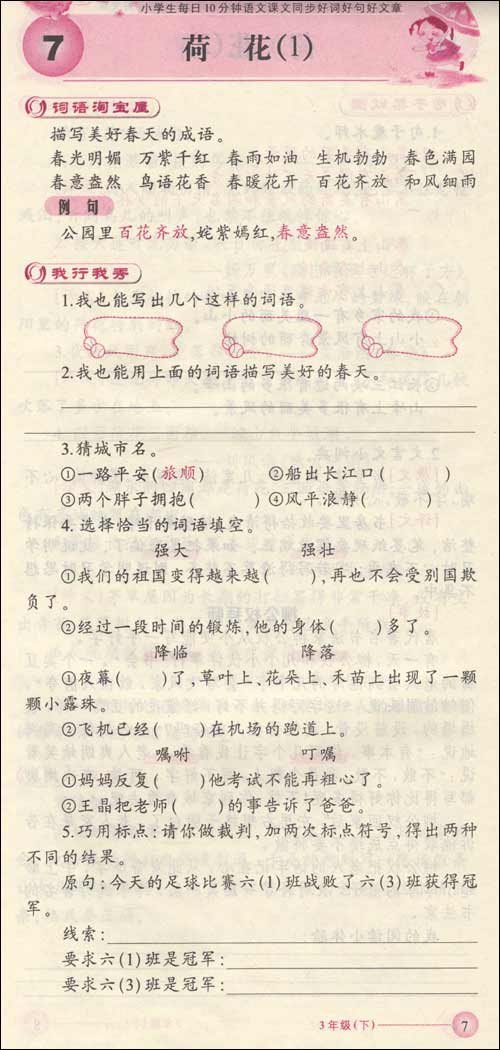 小学生每日10分钟语文课文同步好词好句好文章
7 荷 花(1)
词语淘宝屋
描写美好春天的成语。
春光明媚 万紫千红 春雨如油 生机勃勃 春色满园
春意盎然 鸟语花香 春暖花开 百花齐放 和风细雨
例 句
公园里百花齐放,姹紫嫣红,春意盎然。
我行我秀
1.我也能写出几个这样的词语。
2.我也能用上面的词语描写美好的春天。
3.猜城市名。
①一路平安(旅顺) ②船出长江口( )
③两个胖子拥抱( ) ④风平浪静( )
4.选择恰当的词语填空。
强大 强壮
①我们的祖国变得越来越( ),再也不会受别国欺
负了。
②经过一段时间的锻炼,他的身体( )多了。
降临 降落
①夜幕( )了,草叶上、花朵上、禾苗上出现了一颗
颗小露珠。
②飞机已经( )在机场的跑道上。
嘱咐 叮嘱
①妈妈反复( )他考试不能再粗心了。
②王晶把老师( )的事告诉了爸爸。
5.巧用标点:请你做裁判,加两次标点符号,得出两种
不同的结果。
原句:今天的足球比赛六(1)班战败了六(3)班获得冠
军。
线索:
要求六(1)班是冠军:
要求六(3)班是冠军:
3年级(下) 7